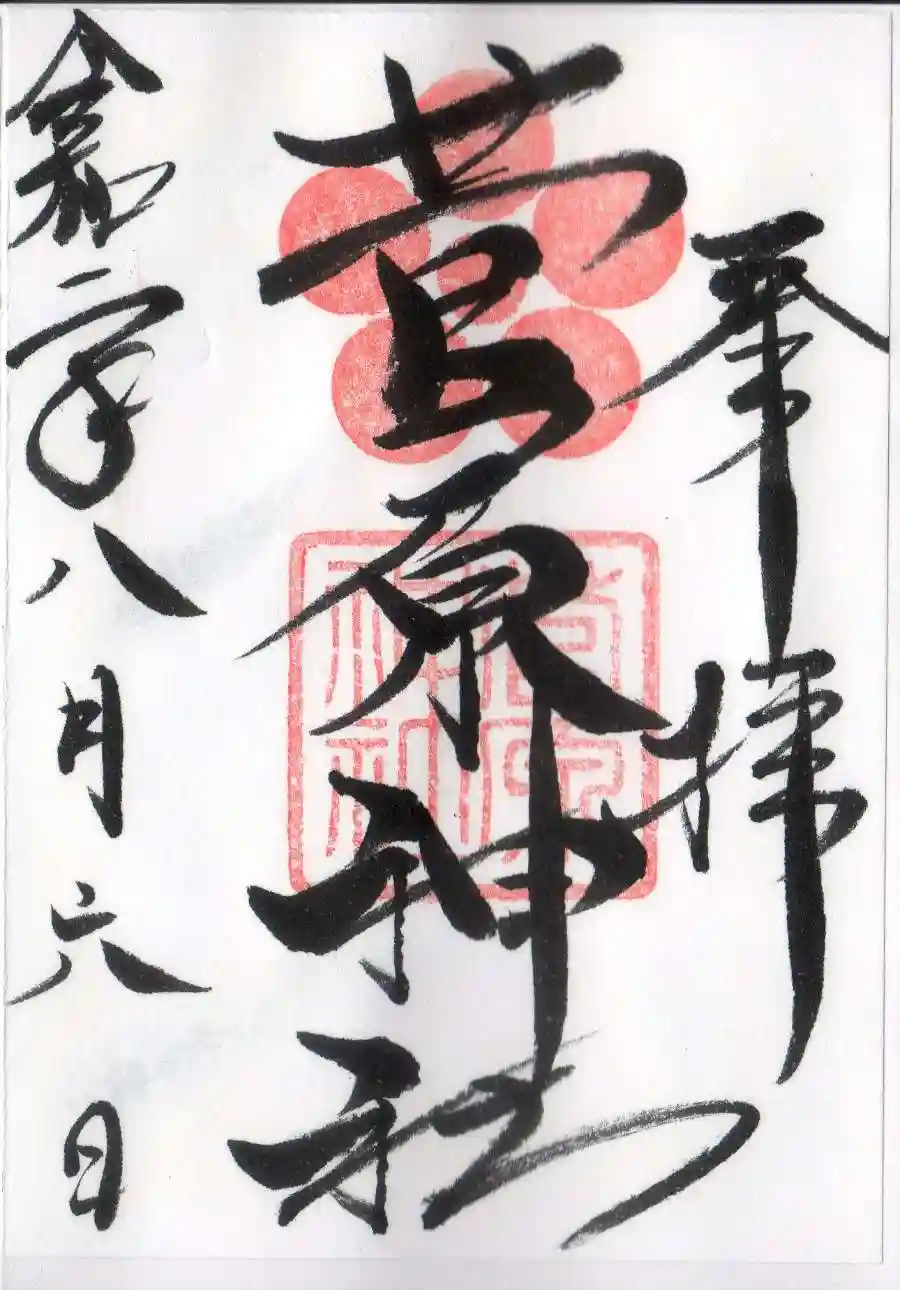 奉拝
菅原神社
菅原神社
令和二年八月六日